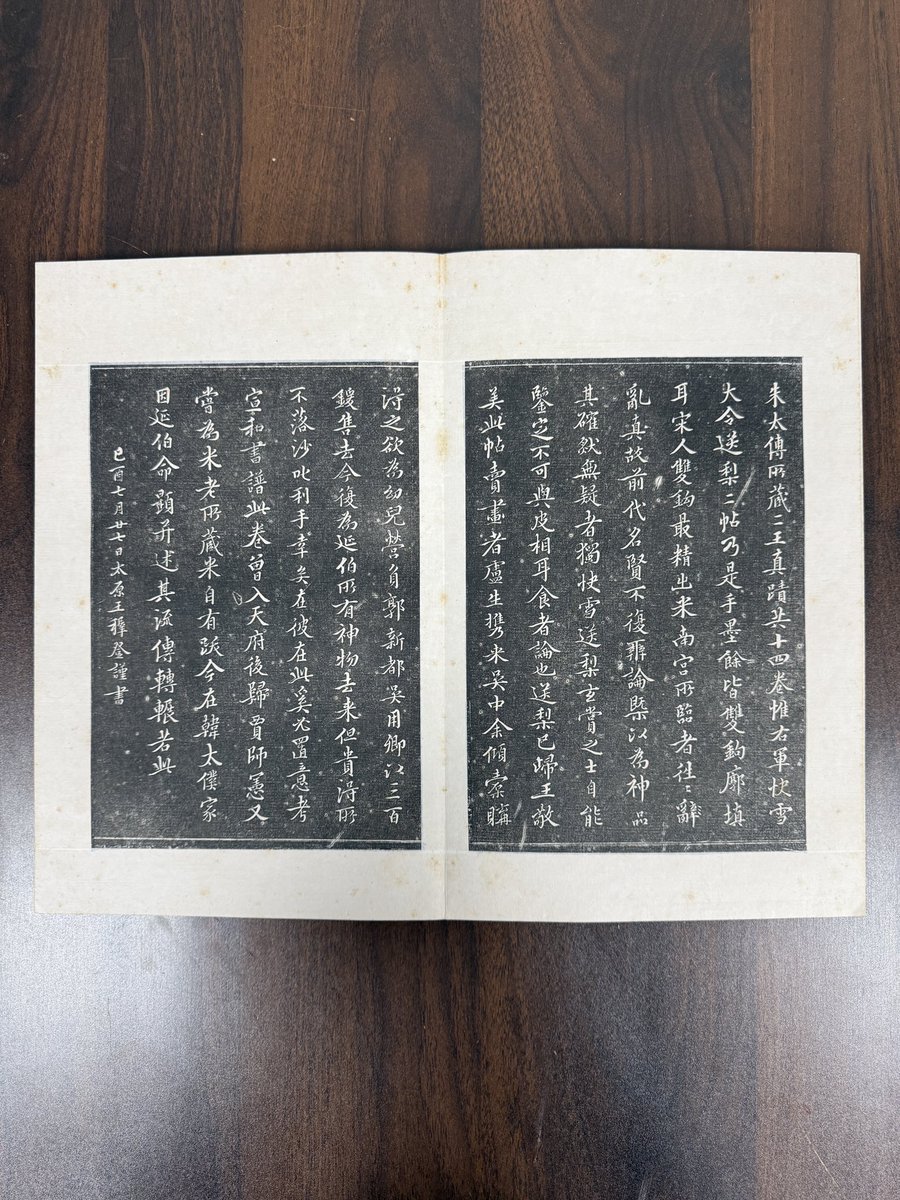 朱太傅所藏二王真蹟共十四卷惟右軍快雪
大令送梨二帖乃是手墨餘皆雙鉤廓填
耳宋人雙鉤最精出米南宮所臨者往〻辭
亂真故前代名賢不復辨論槩以為神品
其確然無疑者獨快雪送梨玄賞之士自能
鑒定不可與皮相耳食者論也送梨已歸王敬
美此帖賣畫者盧生攜来吳中余傾橐購
得之欲為幼兒營負郭新都吳用卿以三百
鍰售去今復為延伯所有神物去来但貴得所
不落沙叱利手幸矣在彼在此奚必置意考
宣和書譜此卷曽入天府後歸賈師憲又
嘗為米老所藏米自有跋今在韓太僕家
因延伯命題并述其流傳轉輾若此
己酉七月廿七日太原王穉登謹書